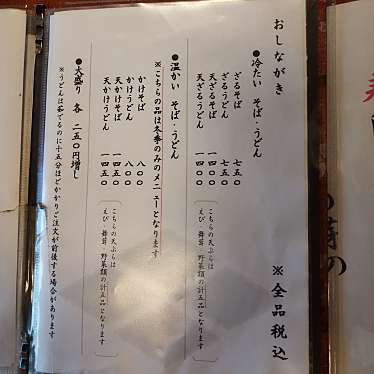 おしながき
※全品税込
●冷たい そば・うどん
ざるそば 七五〇
ざるうどん 七五〇
天ざるそば 一四五〇
天ざるうどん 一四五〇
こちらの天ぷらは
えび・舞茸・野菜類の計五品となります
●温かい そば・うどん
※こちらの品は冬季のみのメニューとなります
かけそば 八〇〇
かけうどん 八〇〇
天かけそば 一四五〇
天かけうどん 一四五〇
こちらの天ぷらは
えび・舞茸・野菜類の計五品となります
●大盛り 各 二五〇円増し
※うどんは茹でるのに十五分ほどかかりご注文が前後する場合があります